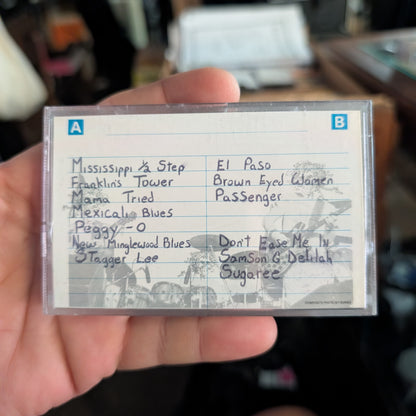 A
B
Mississippi ½ Step
Franklin's Tower
Mama Tried
Mexicali Blues
Peggy-O
New Minglewood Blues
Stagger Lee
El Paso
Brown Eyed Women
Passenger
Don't Ease Me In
Samson & Delilah
Sugaree